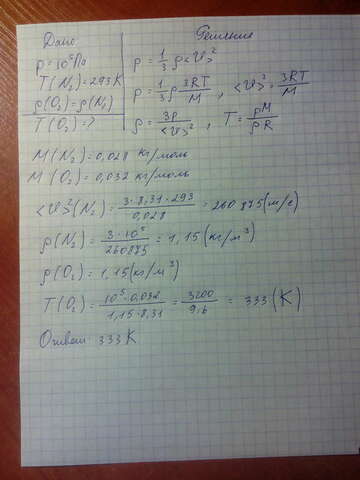 Дано
p = 10⁵ Па
T(N₂) = 293 K
ρ(O₂) = ρ(N₂)
T(O₂) = ?
Решение
p = 1/3 ρ <v>²
p = 1/3 ρ 3RT/M , <v>² = 3RT/M
ρ = 3p/<v>² , T = pM/ρR
M(N₂) = 0,028 кг/моль
M(O₂) = 0,032 кг/моль
<v>²(N₂) = 3·8,31·293/0,028 = 260875 (м/с)
ρ(N₂) = 3·10⁵/260875 = 1,15 (кг/м³)
ρ(O₂) = 1,15 (кг/м³)
T(O₂) = 10⁵·0,032/1,15·8,31 = 3200/9.6 = 333 (K)
Ответ: 333 K